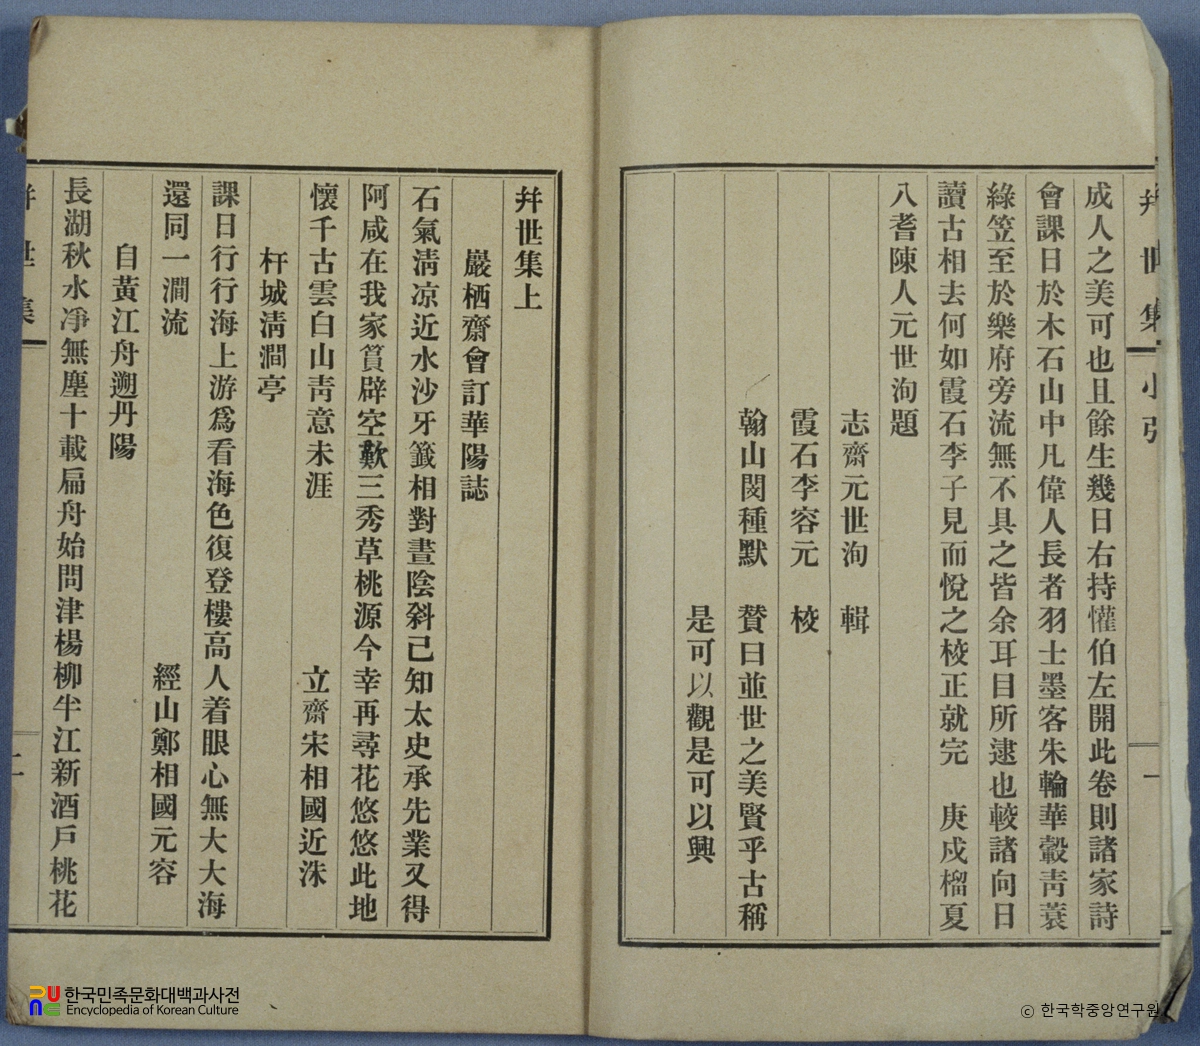 幷世集 小引 一
成人之美可也且餘生幾日右持懽伯左開此卷則諸家詩
會課日於木石山中凡偉人長者羽士墨客朱輪華轂靑蓑
綠笠至於樂府旁流無不具之皆余耳目所逮也較諸向日
讀古相去何如霞石李子見而悅之校正就完 庚戌榴夏
八耆陳人元世洵題
志齋元世洵 輯
霞石李容元 校
翰山閔種默 贊曰並世之美賢乎古稱
是可以觀是可以興
幷世集上
巖栖齋會訂華陽誌
石氣淸凉近水沙牙籤相對晝陰斜己知太史承先業又得
阿咸在我家篔辟空歎三秀草桃源今幸再尋花悠悠此地
懷千古雲白山靑意未涯 立齋宋相國近洙
杆城淸澗亭
課日行行海上游爲看海色復登樓高人着眼心無大大海
還同一澗流 經山鄭相國元容
自黃江舟遡丹陽
長湖秋水凈無塵十載扁舟始問津楊柳半江新酒戶桃花
幷世集
한국민족문화대백과사전
Encyclopedia of Korean Culture
ⓒ 한국학중앙연구원